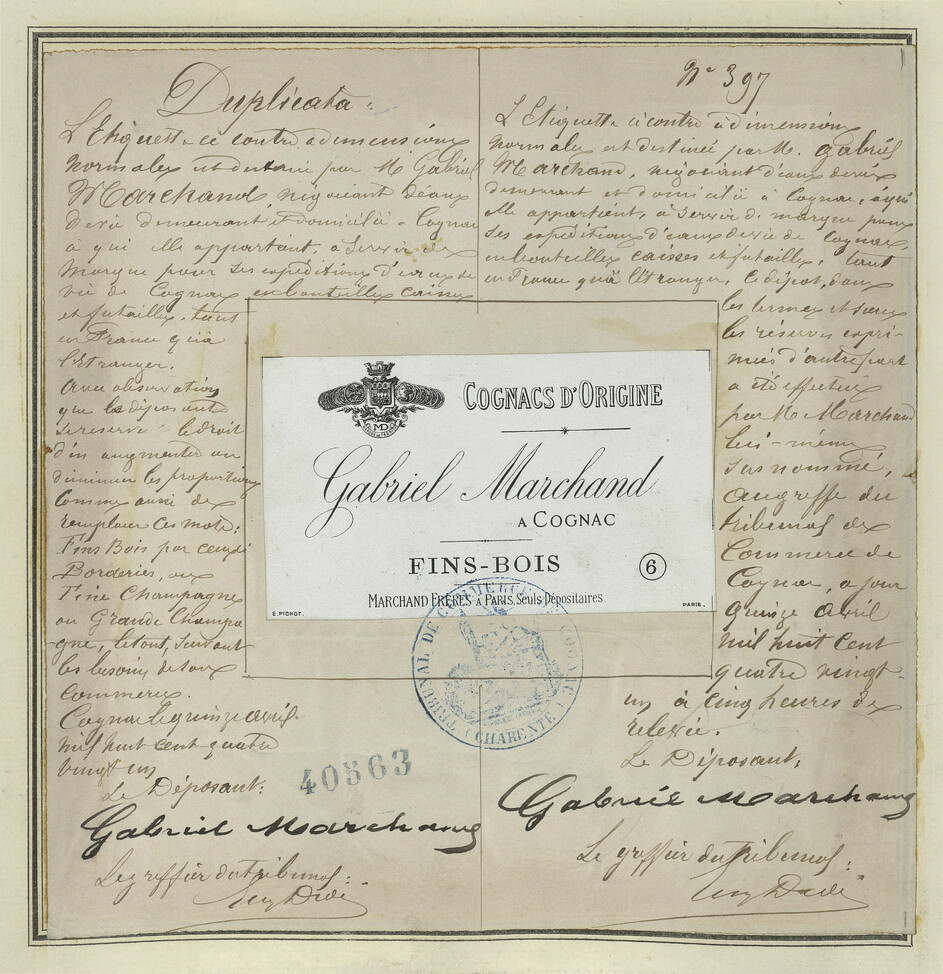 Duplicata:
L'Etiquette ci contre a dimensions
normales est destinée par M Gabriel
Marchand, négociant d'eaux
de vie demeurant et domicilié à Cognac
à qui elle appartient, à servir de
marque pour ses expéditions d'eaux de
vie de Cognac en bouteilles caisses
et futailles, tant
en France qu'à
l'étranger.
Avec observation
que le déposant
se réserve le droit
d'en augmenter ou
diminuer les proportions
comme aussi de
remplacer ces mots:
Fins Bois par ceux de
Borderies, ou
Fine Champagne
ou Grande Champa
gne, le tout, suivant
les besoins de son
commerce.
Cognac le quinze avril
mil huit cent quatre
vingt un
Le Déposant:
Gabriel Marchand
Le greffier du tribunal:
N° 397
L'Etiquette ci contre à dimensions
normales est destinée par M. Gabriel
Marchand, négociant d'eaux de vie
demeurant et domicilié à Cognac, à qui
elle appartient, à servir de marque pour
ses expéditions d'eaux de vie de Cognac,
en bouteilles caisses et futailles, tant
en France qu'à l'étranger. Le dépôt, dans
les termes et sous
les réserves expri-
mées d'autre part
a été effectué
par M. Marchand
lui-même
sus nommé,
au greffe du
tribunal de
Commerce de
Cognac, ce jour
quinze avril
mil huit cent
quatre vingt-
un à cinq heures de
relevée.
Le Déposant,
Gabriel Marchand
Le greffier du tribunal:
COGNACS D'ORIGINE
MD
Gabriel Marchand
A COGNAC
FINS-BOIS
6
MARCHAND FRÈRES A PARIS, Seuls Dépositaires
E. PICHOT.
PARIS.
TRIBUNAL DE COMMERCE DE COGNAC
(CHARENTE)
40563